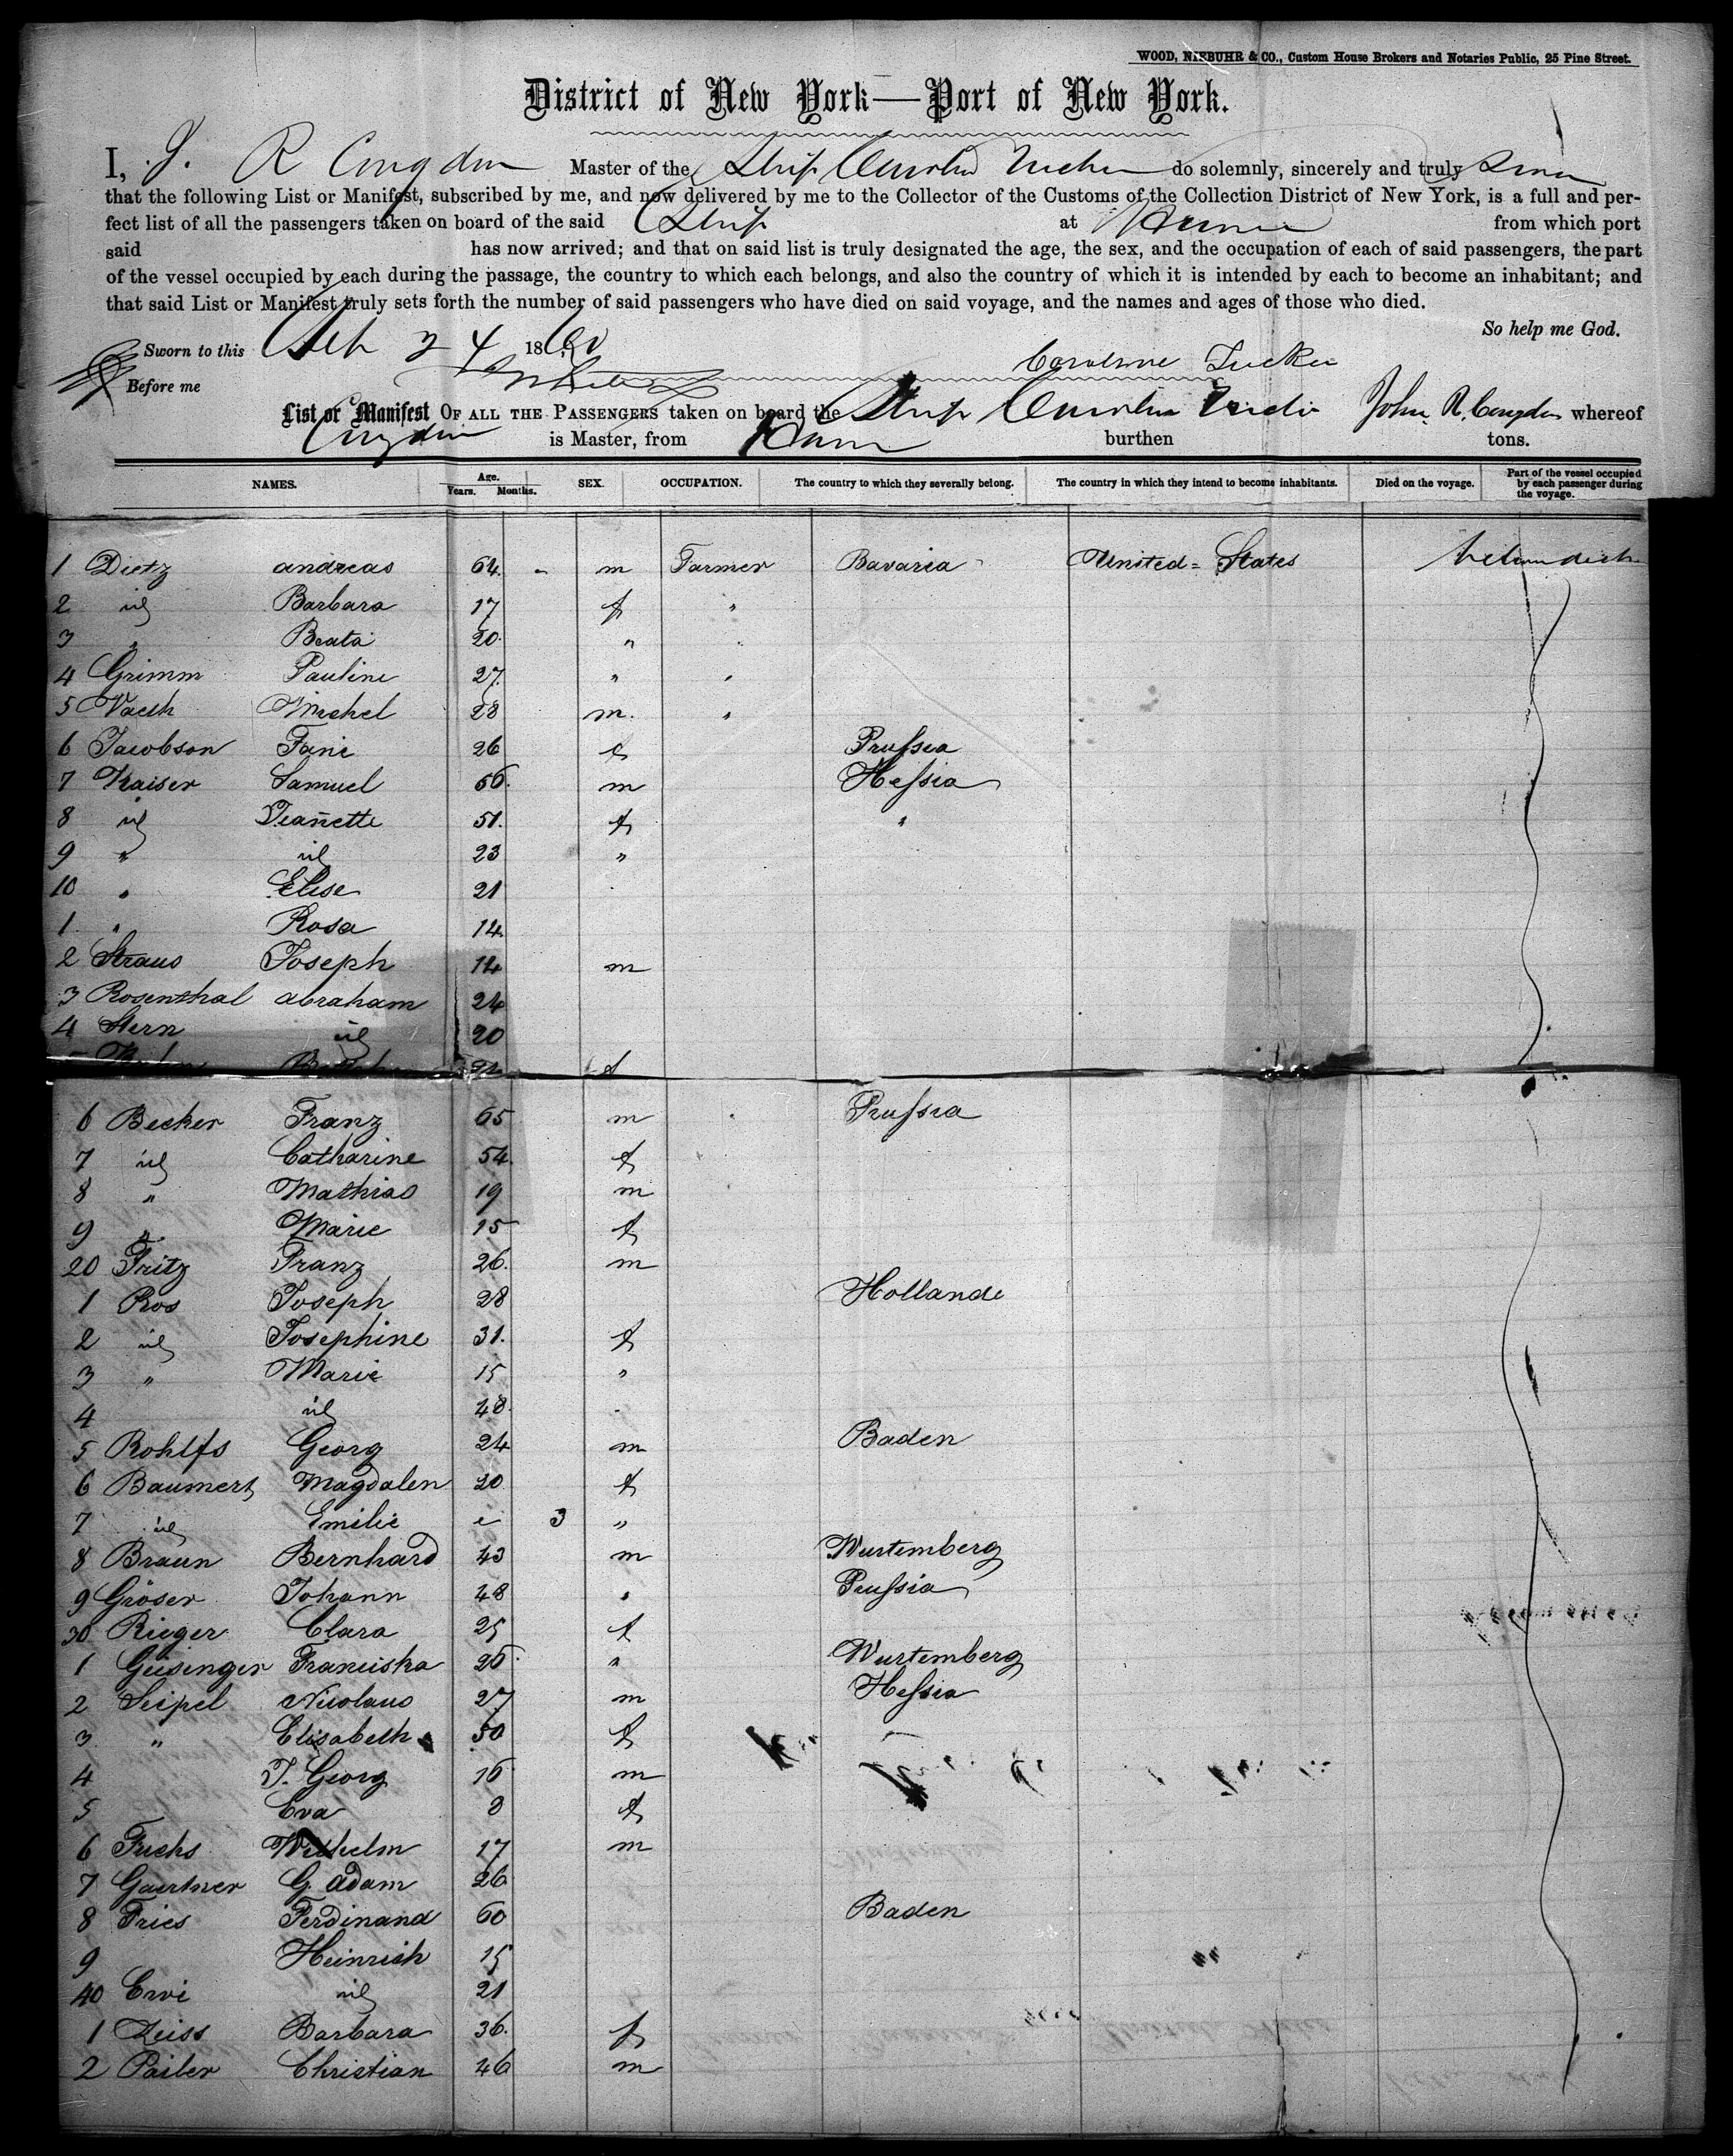 WOOD, NIEBUHR & CO., Custom House Brokers and Notaries Public, 25 Pine Street.
District of New York—Port of New York.
I, J. R Congdon Master of the Ship Caroline Tucker do solemnly, sincerely and truly
that the following List or Manifest, subscribed by me, and now delivered by me to the Collector of the Customs of the Collection District of New York, is a full and per-
fect list of all the passengers taken on board of the said Ship at Bremen from which port
said has now arrived; and that on said list is truly designated the age, the sex, and the occupation of each of said passengers, the part
of the vessel occupied by each during the passage, the country to which each belongs, and also the country of which it is intended by each to become an inhabitant; and
that said List or Manifest truly sets forth the number of said passengers who have died on said voyage, and the names and ages of those who died.
So help me God.
Sworn to this 24 1860
Caroline Tucker
Before me
List or Manifest OF ALL THE PASSENGERS taken on board the Ship Caroline Tucker John R. Congdon whereof
Congdon is Master, from burthen tons.
NAMES. Age. Years. Months. SEX. OCCUPATION. The country to which they severally belong. The country in which they intend to become inhabitants. Died on the voyage. Part of the vessel occupied by each passenger during the voyage.
1 Dietz andreas 64. - m Farmer Bavaria United=States
2 id Barbara 17 f "
3 " Beata 20. "
4 Grimm Pauline 27. " "
5 Vaeth Michel 28 m. "
6 Jacobson Fani 26 f Prussia
7 Kaiser Samuel 56. m Hessia
8 id Jeanette 51. f "
9 " id 23 "
10 " Elise 21
1 " Rosa 14
2 Straus Joseph 14 m
3 Rosenthal abraham 24
4 Stern id 20
f
6 Becker Franz 65 m Prussia
7 id Catharine 54. f
8 " Mathias 19 m
9 " Marie 15 f
20 Fritz Franz 26. m
1 Ros Joseph 28 Hollande
2 id Josephine 31. f
3 " Marie 15 "
4 id 48
5 Rohlfs Georg 24 m Baden
6 Baumert Magdalen 20 f
7 id Emilie 3 "
8 Braun Bernhard 43 m Wurtemberg
9 Gröser Johann 48 " Prussia
30 Rieger Clara 25 f
1 Geisenger Franciska 26 " Wurtemberg
2 Seipel Nicolaus 27 m Hessia
3 " Elisabeth 50 f
4 J. Georg 16 m
5 Eva 8 f
6 Fuchs Wilhelm 17 m
7 Gaertner G. adam 26
8 Fries Ferdinand 60 Baden
9 Heinrich 15
40 Erni id 21
1 Zeiss Barbara 36. f
2 Pailer Christian 46 m